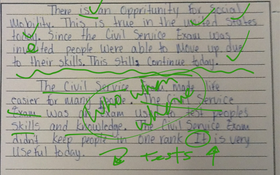 There is an Opportunity for Social
Mobility. This is true in the united states
today. Since the Civil Service Exam was
invented people were able to Move up due
to their skills. This Still Continue today.
The Civil Service made life
easier for many The Civil Service
Exam was an Exam used to test peoples
Skills and knowledge. The Civil Service Exam
didn't keep people in one rank. It is very
Useful today.
tests